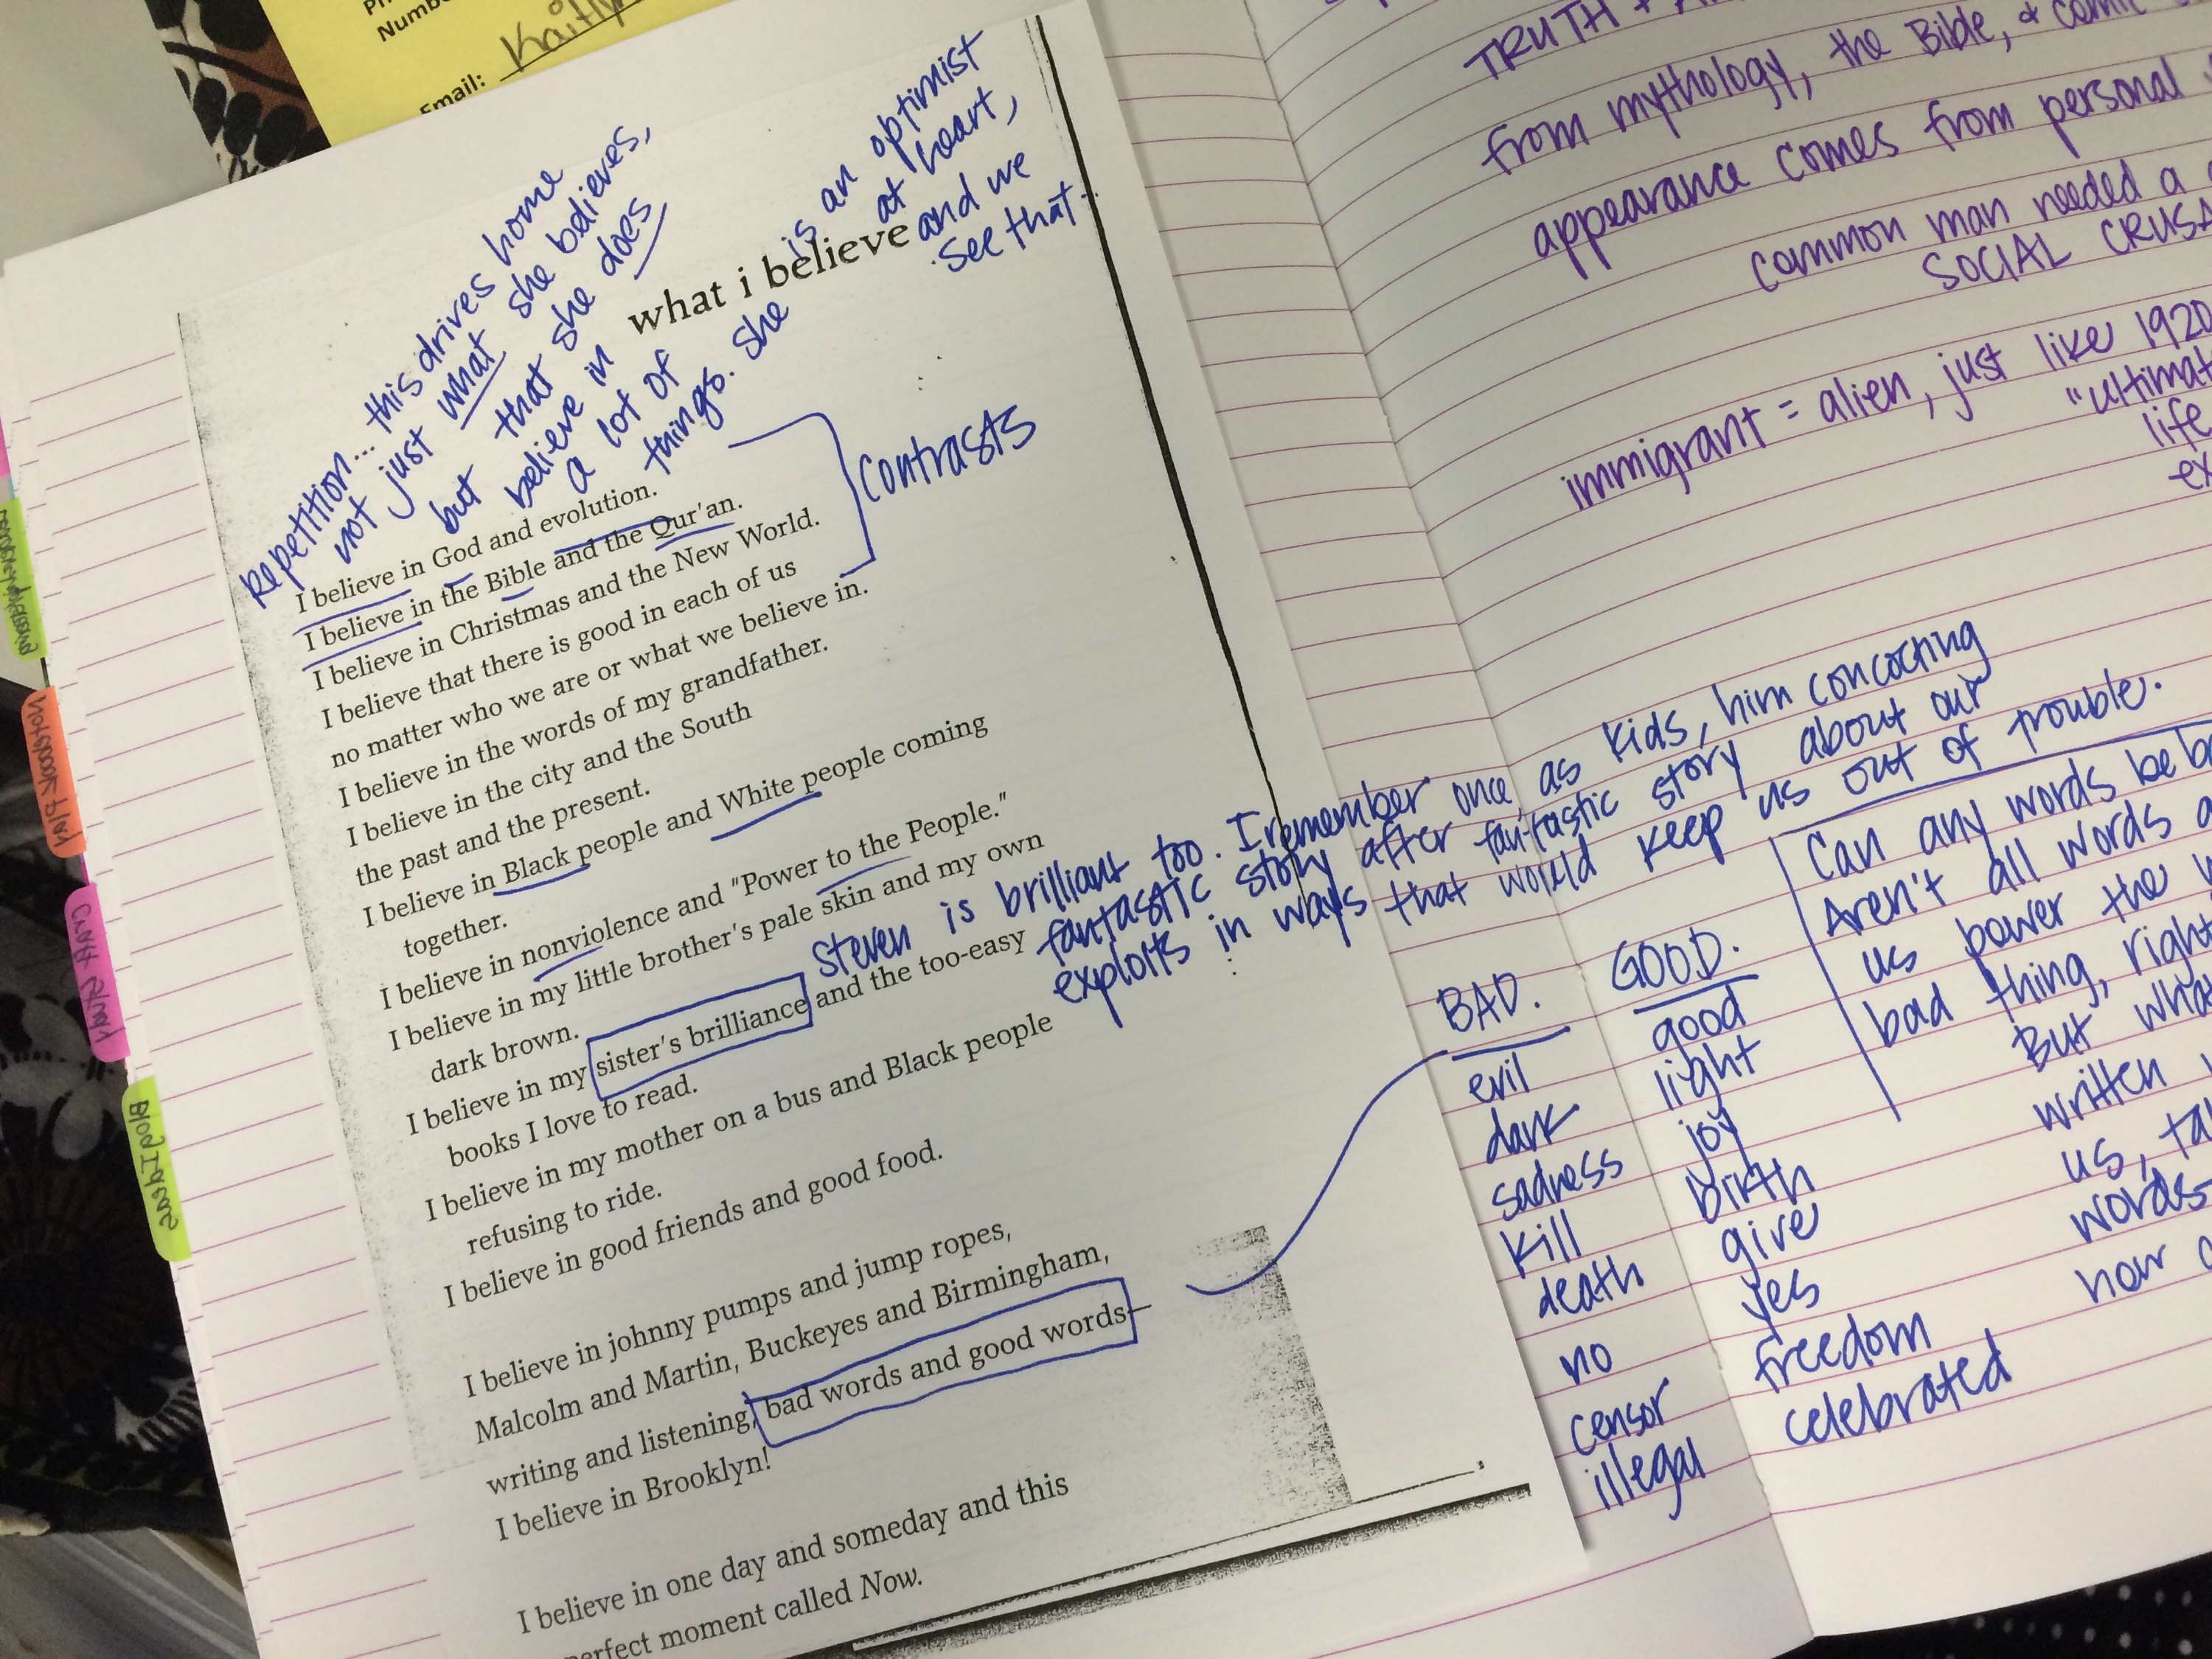 Numb
Email:
Repetition... this drives home
not just what she believes,
but that she does
believe in
a lot of
things. she
is an optimist
at heart,
and we
see that.
what i believe
I believe in God and evolution.
I believe in the Bible and the Qur'an.
I believe in Christmas and the New World.
I believe that there is good in each of us
no matter who we are or what we believe in.
I believe in the words of my grandfather.
I believe in the city and the South
the past and the present.
I believe in Black people and White people coming
together.
I believe in nonviolence and "Power to the People."
I believe in my little brother's pale skin and my own
dark brown.
I believe in my sister's brilliance and the too-easy
books I love to read.
I believe in my mother on a bus and Black people
refusing to ride.
I believe in good friends and good food.
I believe in johnny pumps and jump ropes,
Malcolm and Martin, Buckeyes and Birmingham,
writing and listening, bad words and good words—
I believe in Brooklyn!
I believe in one day and someday and this
perfect moment called Now.
contrasts
Steven is brilliant too. I remember once, as kids, him concocting
fantastic story after fantastic story about our
exploits in ways that would keep us out of trouble.
BAD.
evil
dark
sadness
kill
death
no
censor
illegal
GOOD.
good
light
joy
birth
give
yes
freedom
celebrated
Can any words be b
Aren't all words a
us power the w
bad thing, right
But what
written
us, ta
words
how c
TRUTH +
from mythology, the Bible, & comic
appearance comes from personal
common man needed a
SOCIAL CRUSA
immigrant = alien, just like 1920
"ultimat
life
ex
Blog Ideas